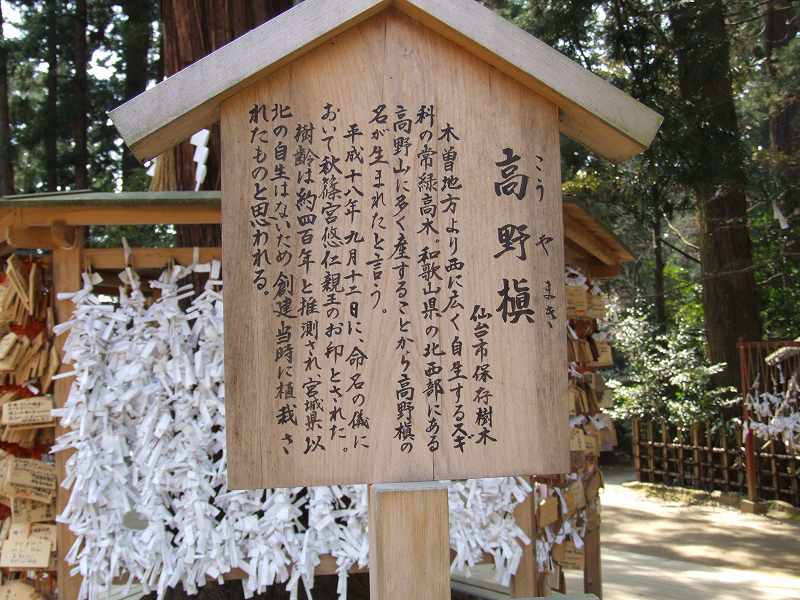 こうやまき
高野槇
仙台市保存樹木
木曽地方より西に広く自生するスギ
科の常緑高木。和歌山県の北西部にある
高野山に多く産することから高野槇の
名が生まれたと言う。
平成十八年九月十二日に、命名の儀に
おいて秋篠宮悠仁親王のお印とされた。
樹齢は約四百年と推測され、宮城県以
北の自生はないため創建当時に植栽さ
れたものと思われる。